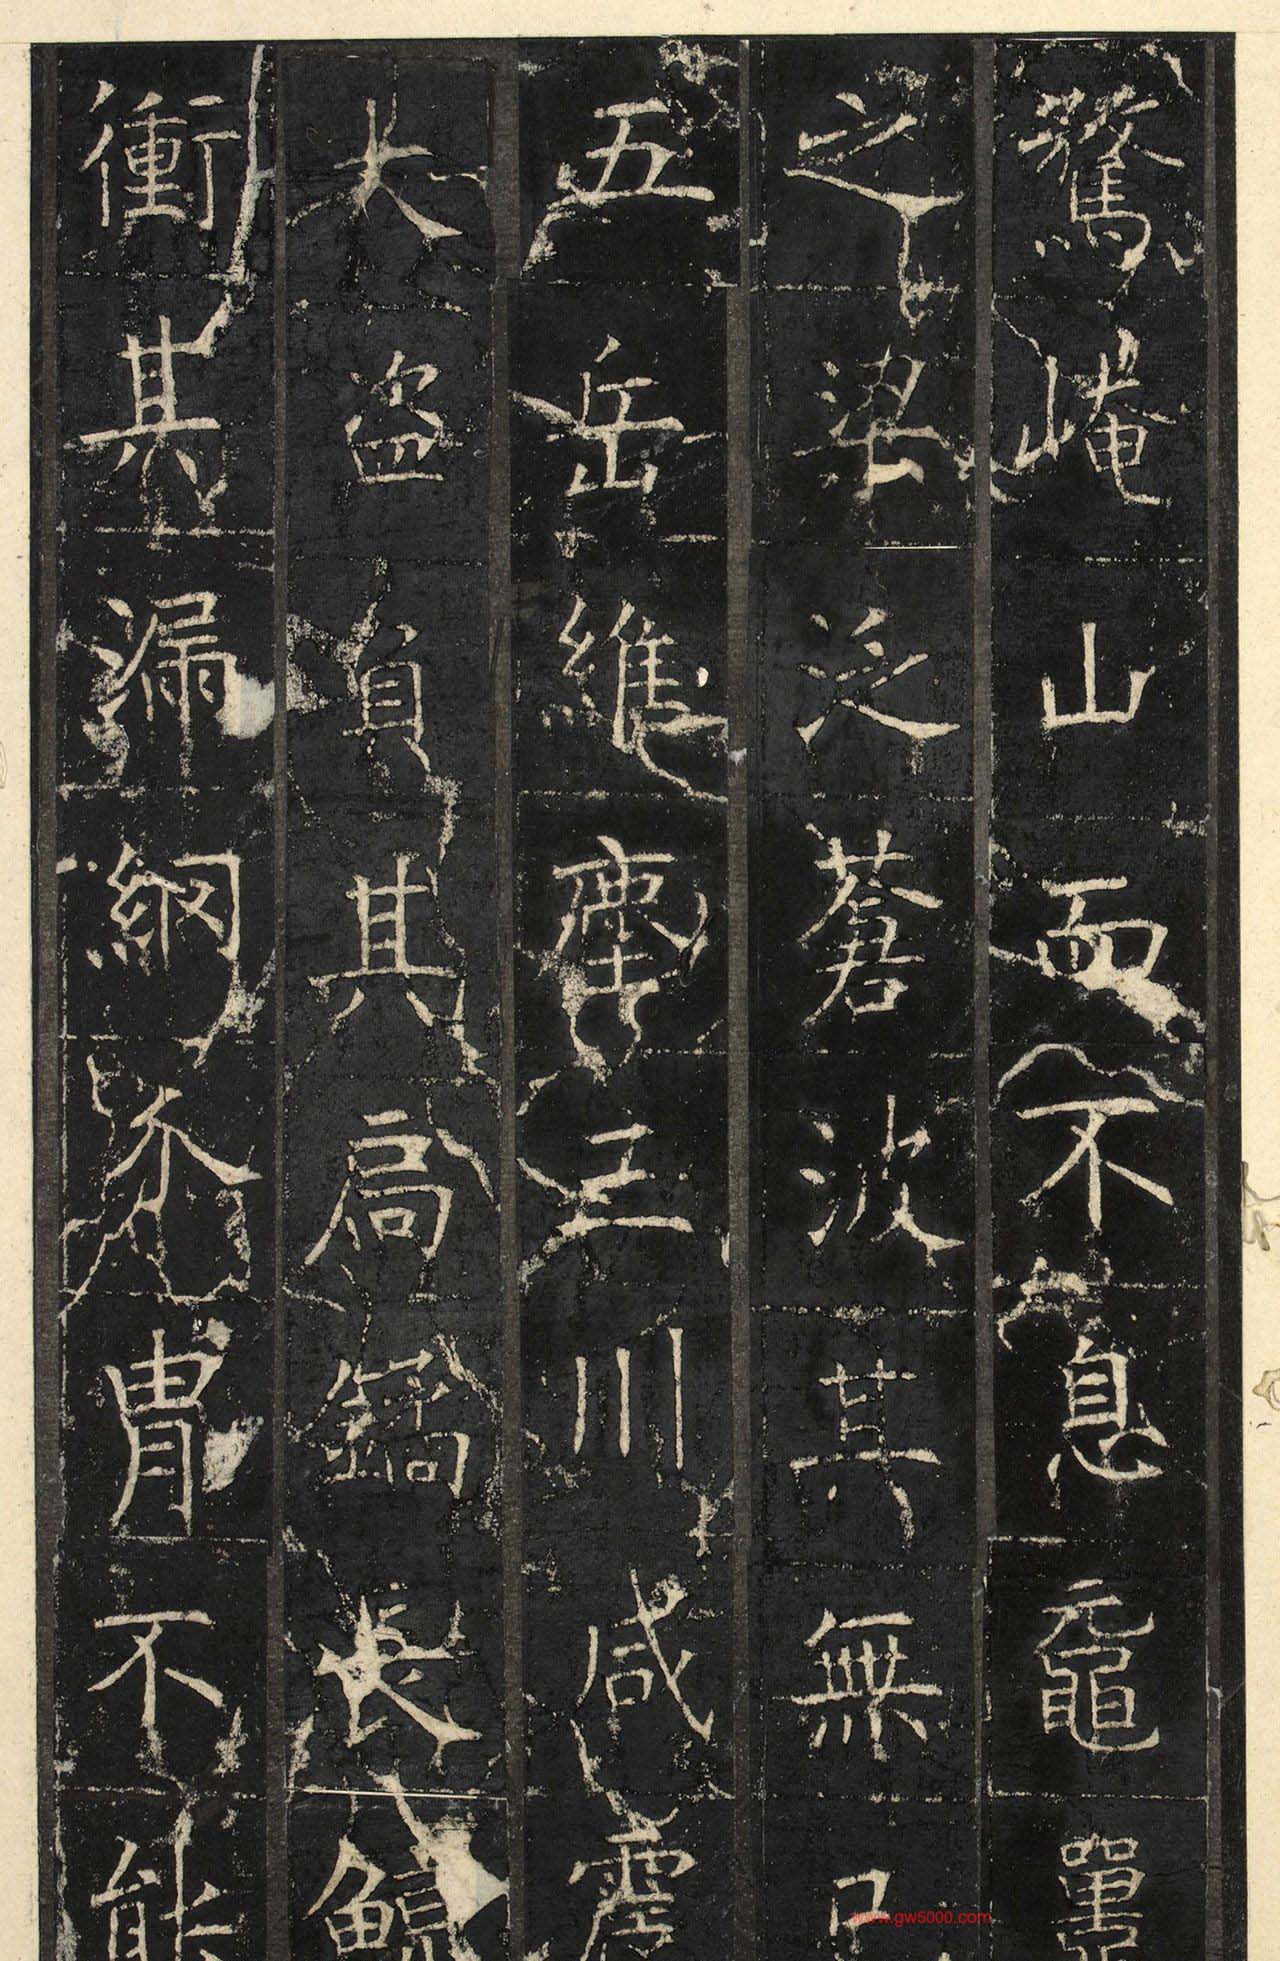 驚崦山而不息黿鼉
之梁泛蒼波其無已
五岳維塵三川咸震
大盜負其扃鐍長鯨
衝其漏網介胄不能
www.gw5000.com